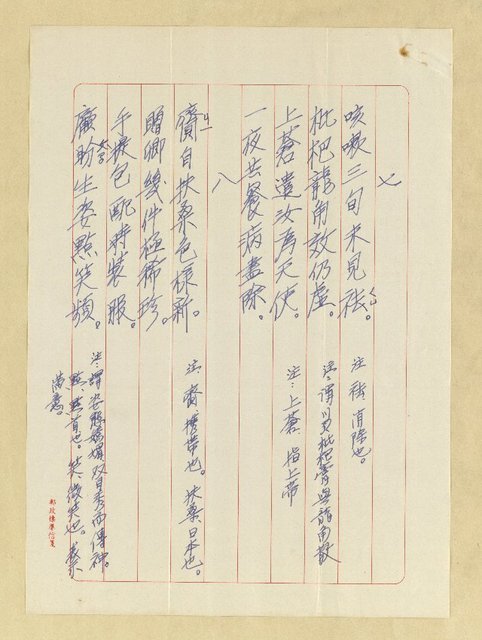 七
咳嗽三旬未見祛。 注 祛 消除也。
枇杷龍角效仍虛。 注：謂以川貝枇杷膏與龍角散
上蒼遣汝為天使。 注：上蒼 指上帝
一夜共餐病盡除。
八
齎自扶桑色樣新。 注：齎 攜帶也。扶桑 日本也。
贈卿幾件極稀珍。
手提包配時裝服。
顧盼生姿點笑頻。 注：謂姿態嬌媚双目秀而傳神。
點、點首也。笑、微笑也。表示
滿意。
郵政標準信箋